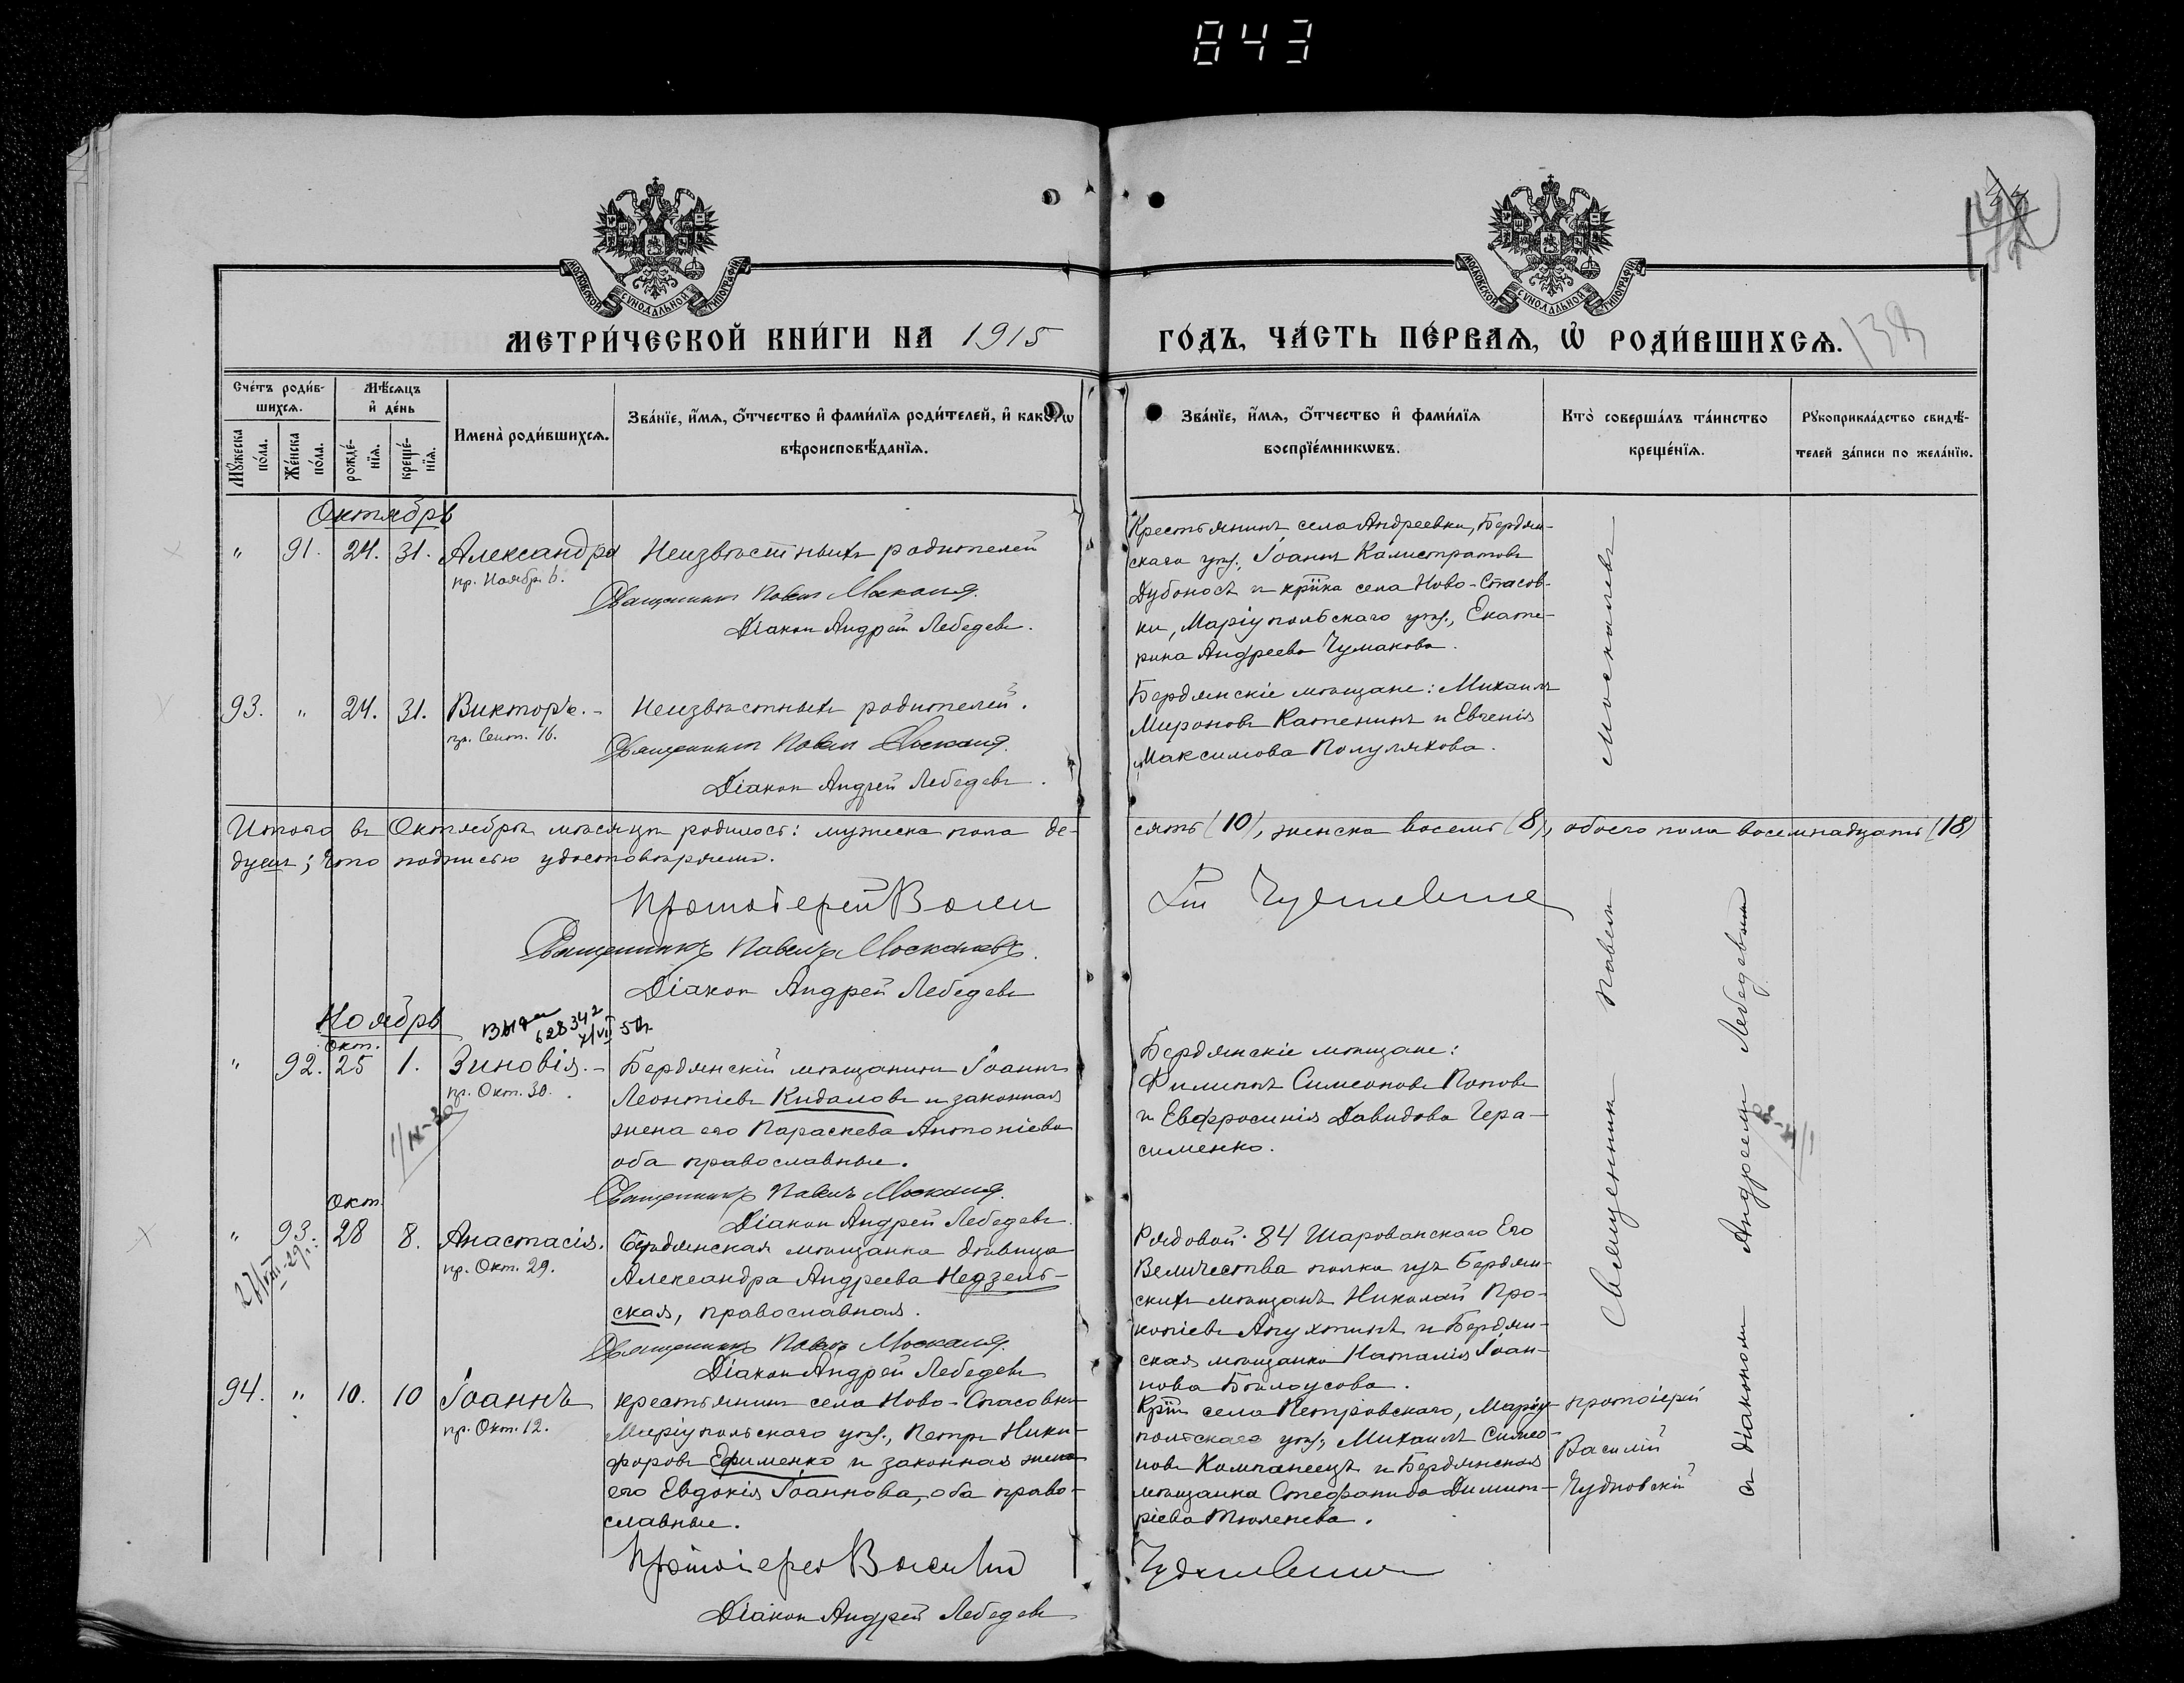 843
МОСКОВСКОЙ СѴНОДАЛЬНОЙ ТИПОГРАФІИ
МОСКОВСКОЙ СѴНОДАЛЬНОЙ ТИПОГРАФІИ
МЕТРИ́ЧЕСКОЙ КНИ́ГИ НА 1915
ГО́ДЪ, ЧА́СТЬ ПЕ́РВАЯ, Ѡ҆ РОДИ́ВШИХСЯ.
138
Сче́тъ роди́в-
шихся.
Мѣ́сяцъ
и҆ де́нь
Мꙋ́жеска по́ла.
Же́нска по́ла.
рожде́-
нїя.
креще́-
нїя.
Имена̀ роди́вшихся.
Зва́нїе, и҆́мя, ѻ҆́тчество и҆ фами́лїя роди́телей, и҆ како́гѡ
вѣроисповѣ́данїя.
Зва́нїе, и҆́мя, ѻ҆́тчество и҆ фами́лїя
воспрїе́мникѡвъ.
Кто̀ соверша́лъ та́инство
креще́нїя.
Рꙋкоприкла́дство свидѣ́-
телей за́писи по жела́нїю.
Октябрь
" 91. 24. 31. Александра
пр. Ноябр. 6.
Неизвѣстныхъ родителей
Священникъ Павелъ Москалев.
Діаконъ Андрей Лебедевъ.
Крестьянинъ села Андреевки, Бердян-
скаго уѣз., Іоаннъ Калистратовъ
Дубоносъ и кр҃нка села Ново-Спасов-
ки, Маріупольскаго уѣз., Екате-
рина Андреева Чумакова.
93. " 24. 31. Викторъ. -
пр. Сент. 16.
Неизвѣстныхъ родителей.
Священникъ Павелъ Москалев.
Діаконъ Андрей Лебедевъ.
Бердянскіе мѣщане: Михаилъ
Мироновъ Катенинъ и Евгенія
Максимова Полулякова.
Итого въ Октябрѣ мѣсяцѣ родилось: мужеска пола де-
сять (10), женска восемь (8), обоего пола восемнадцать (18)
душъ; что подписью удостовѣряемъ.
Протоіерей Васи
лій Чудновскій
Священникъ Павелъ Москалевъ.
Діаконъ Андрей Лебедевъ
Ноябрь
628342
Окт.
" 92. 25 1. Зиновія. -
пр. Окт. 30.
Бердянскій мѣщанинъ Іоаннъ
Леонтіевъ Кидаловъ и законная
жена его Параскева Антоніева
оба православные.
Священникъ Павелъ Москалев.
Діаконъ Андрей Лебедевъ
Бердянскіе мѣщане:
Филиппъ Симеоновъ Поповъ
и Евфросинія Давидова Гера-
сименко.
Окт.
" 93. 28 8. Анастасія.
пр. Окт. 29.
27/VIII-29 г.
Бердянская мѣщанка дѣвица
Александра Андреева Недзель-
ская, православная.
Священникъ Павелъ Москалев.
Діаконъ Андрей Лебедевъ
Рядовой 84 Ширванскаго Его
Величества полка изъ Бердян-
скихъ мѣщанъ Николай Про-
копіевъ Апухтинъ и Бердян-
ская мѣщанка Наталія Іоан-
нова Бѣлоусова.
94. " 10. 10 Іоаннъ
пр. Окт. 12.
крестьянинъ села Ново-Спасовки
Маріупольскаго уѣз., Петръ Ники-
форовъ Ефименко и законная жена
его Евдокія Іоаннова, оба право-
славные.
Протоіерей Василій
Чудновскій
Діаконъ Андрей Лебедевъ
Кр҃нъ села Петровскаго, Маріу-
польскаго уѣз., Михаилъ Симео-
новъ Компанеецъ и Бердянская
мѣщанка Стефанида Димит-
ріева Тюленева.
Протоіерей
Василій
Чудновскій
Священникъ Павелъ Москалевъ
съ діакономъ Андреемъ Лебедевымъ